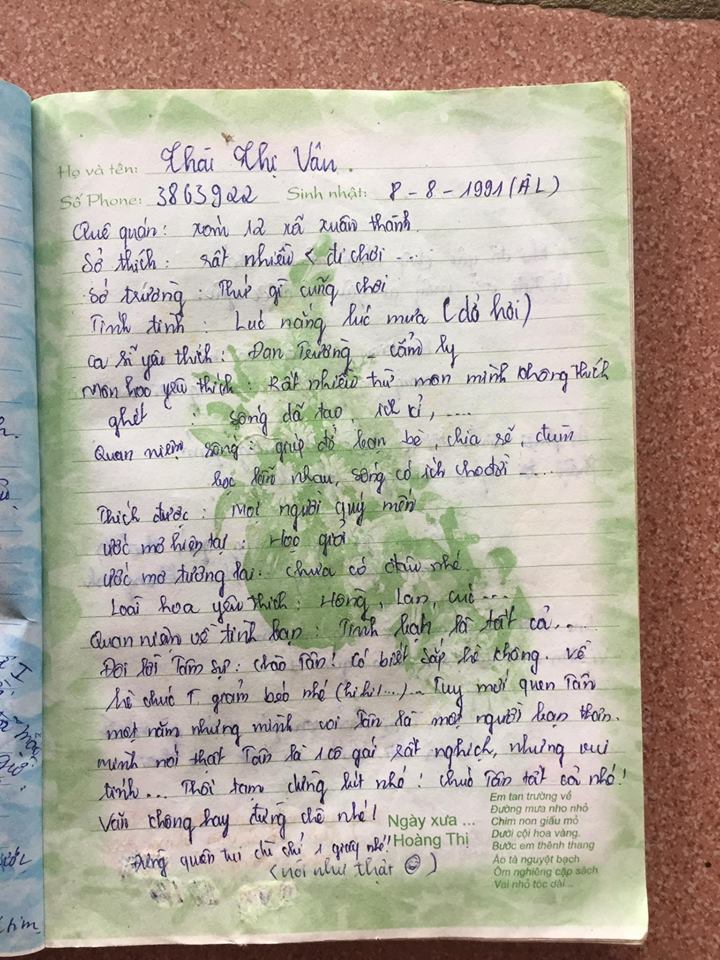 Họ và tên: Thái Thị Vân.
Số Phone: 3863922 Sinh nhật: 8 - 8 - 1991 (ÂL)
Quê quán: xóm 12 xã xuân thành.
Sở thích: rất nhiều < đi chơi ...
Sở trường: Thứ gì cũng chơi
Tính tình: Lúc nắng lúc mưa (đỏ hỏi)
ca sĩ yêu thích: Đan Trường - cẩm ly
Môn học yêu thích: Rất nhiều trừ môn mình không thích
ghét: sống dã tạo, ích kỉ, ....
Quan niệm sống: giúp đỡ bạn bè, chia sẽ, đùm
bọc lẫn nhau, sống có ích cho đời ....
Thích được: Mọi người quý mến
ước mơ hiện tại: Học giỏi
ước mơ tương lai: chưa có đâu nhé
Loài hoa yêu thích: Hồng, Lan, cúc ...
Quan niệm về tình bạn: Tình bạn là tất cả...
Đôi lời Tâm sự: chào Tân! Có biết sắp hè không. về
hè chúc T. giảm béo nhé (hi hi!...).. Tuy mới quen Tân
một năm nhưng mình coi Tân là một người bạn thân.
mình nói thật Tân là 1 cô gái rất nghịch, nhưng vui
tính... Thôi tạm dừng bút nhé! chúc Tân tất cả nhé!
Văn không hay đừng chê nhé!
Đừng quên tui chỉ 1 giây nhé!
(nói như thật ☺)
Ngày xưa ...
Hoàng Thị
Em tan trường về
Đường mưa nho nhỏ
Chim non giấu mỏ
Dưới cội hoa vàng.
Bước em thênh thang
Áo tà nguyệt bạch
Ôm nghiêng cặp sách
Vai nhỏ tóc dài...